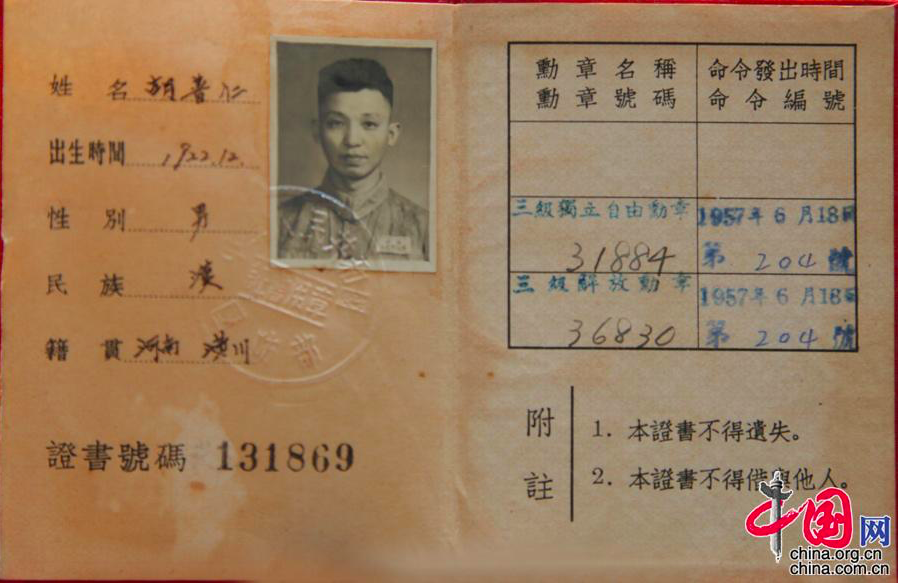 姓名 胡普仁
出生時間 1922.12.
性別 男
民族 漢
籍貫 河南 潢川
證書號碼 131869
勳章名稱 命令發出時間
勳章號碼 命令編號
三級獨立自由勳章 1957年6月18日
31884 第204號
三級解放勳章 1957年6月18日
36830 第204號
附註
1. 本證書不得遺失。
2. 本證書不得借與他人。
中国网
china.org.cn
china.com.cn